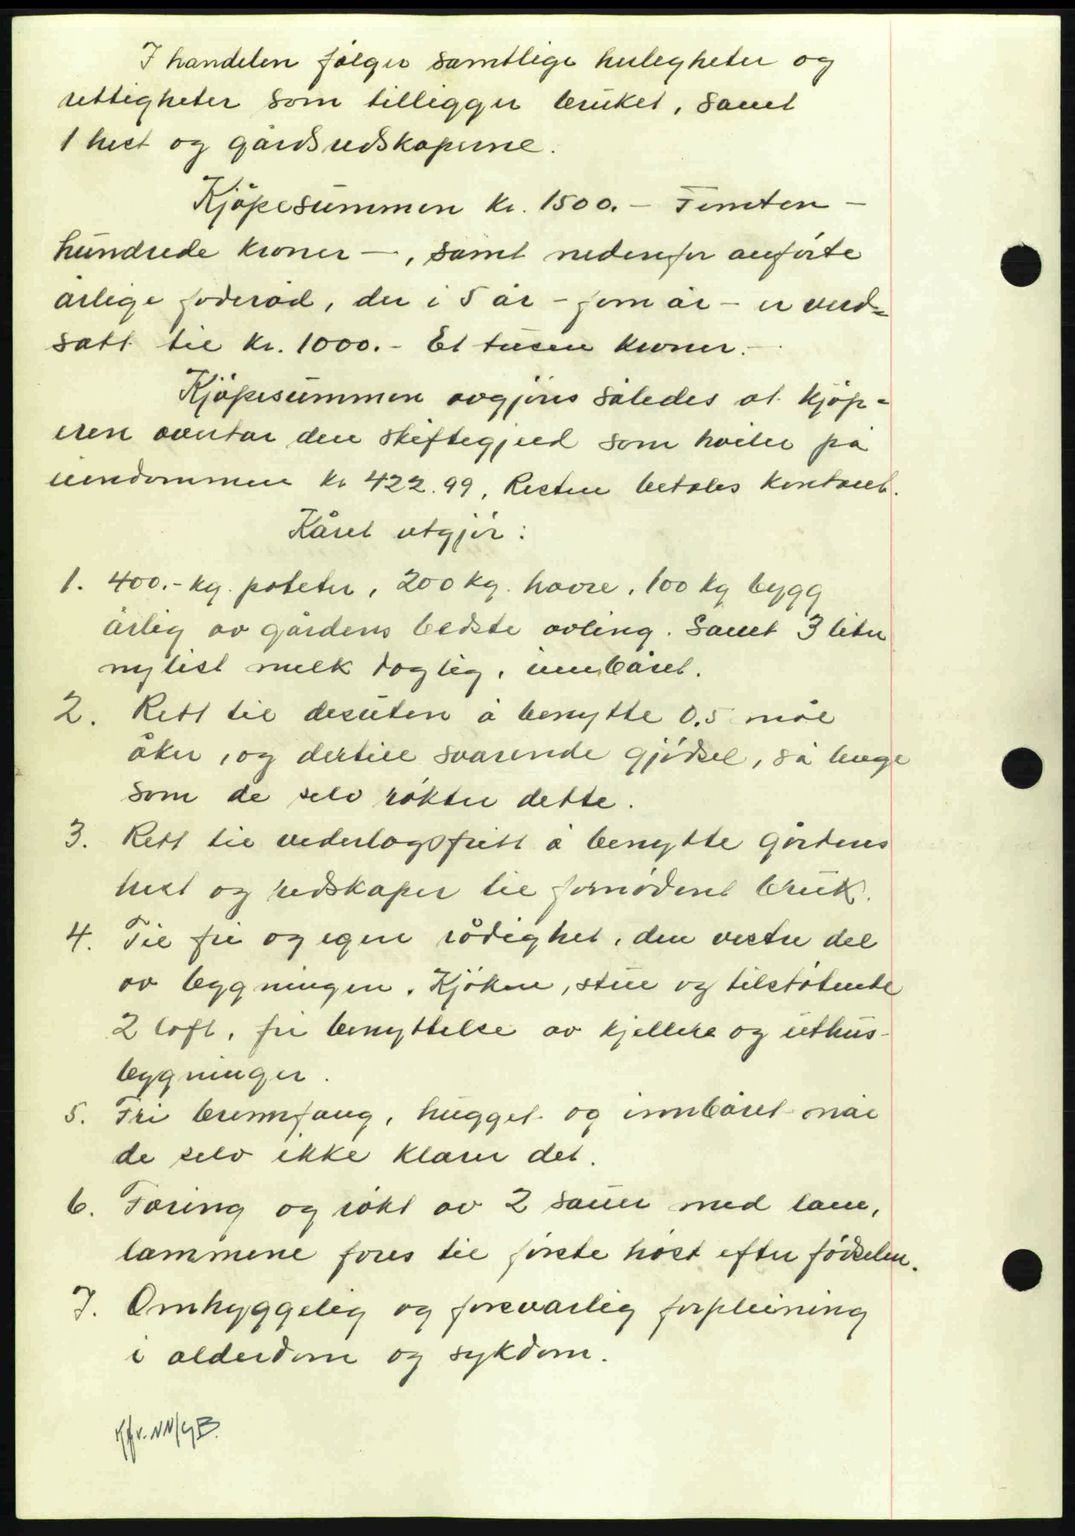 I handelen følger samtlige herligheter og
rettigheter som tilligger bruket, samt
1 hest og gårdsredskaperne.
Kjöpesummen kr. 1500.- Femten -
hundrede kroner -, samt nedenfor anførte
årlige foderåd, der i 5 år - fem år - er verd=
satt til kr. 1000.- Et tusen kroner.-
Kjöpesummen avgjøres således at kjöp=
eren overtar den skiftegjeld som hviler på
eiendommen kr 422.99, Resten betales kontant.
Kåret utgjör:
1. 400.- kg. poteter, 200 kg. havre, 100 kg bygg
årlig av gårdens bedste avling. Samt 3 liter
nysilt melk daglig, innbåret.
2. Rett til desuten å benytte 0.5 mål
åker, og dertil svarende gjødsel, så lenge
som de selv røkter dette.
3. Rett til vederlagsfritt å benytte gårdens
hest og redskaper til fornødent bruk.
4. Til fri og egen rådighet, den vestre del
av bygningen. Kjøken, stue og tilstøtende
2 loft, fri benyttelse av kjellere og uthus-
bygninger.
5. Fri brennfang, hugget og innbåret når
de selv ikke klarer det.
6. Foring og røkt av 2 sauer med lam,
lammene fores til første høst efter fødselen.
7. Omhyggelig og forsvarlig forpleining
i alderdom og sykdom.
Kfr. NN/GB.